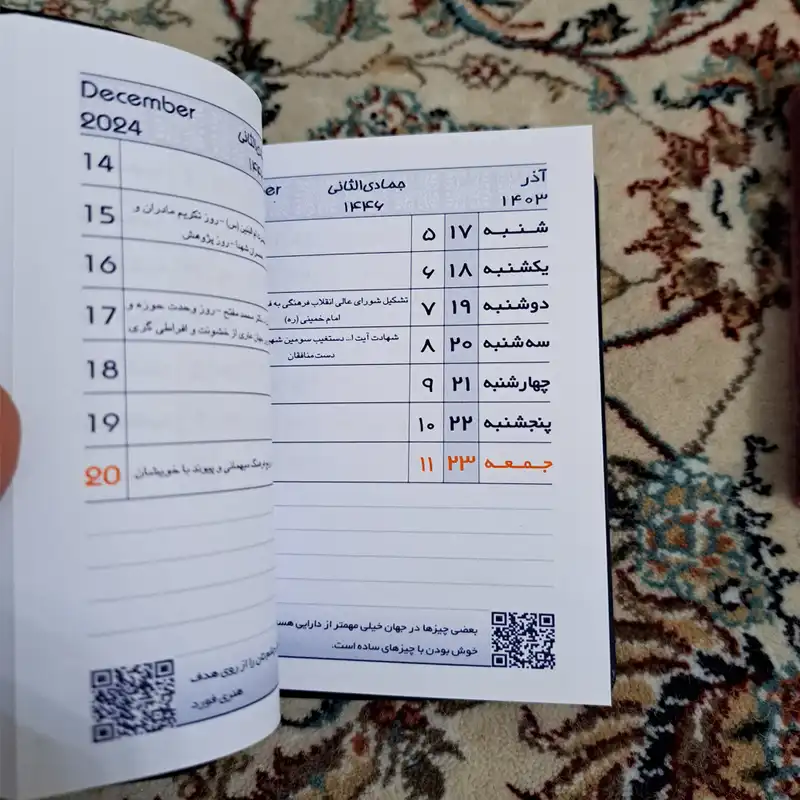 December
2024
14
15
روز تکریم مادران و
روز پژوهش
16
17
محمد مفتح - روز وحدت حوزه و
عاری از خشونت و افراطی گری
18
19
20
مهمانی و پیوند با خویشان
را از روی هدف
هنری فورد
آذر
۱۴۰۳
جمادی‌الثانی
۱۴۴۶
شنبه ۱۷ ۵
یکشنبه ۱۸ ۶
دوشنبه ۱۹ ۷
تشکیل شورای عالی انقلاب فرهنگی به
امام خمینی (ره)
سه‌شنبه ۲۰ ۸
شهادت آیت ا... دستغیب سومین
دست منافقان
چهارشنبه ۲۱ ۹
پنجشنبه ۲۲ ۱۰
جمعه ۲۳ ۱۱
بعضی چیزها در جهان خیلی مهمتر از دارایی
خوش بودن با چیزهای ساده است.